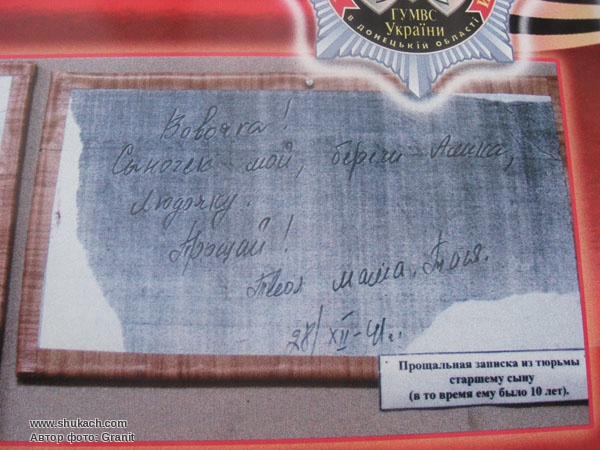 ГУМВС
України
в Донецькій області
Вовочка!
Сыночек мой, береги Алика,
Людочку.
Прощай!
Твоя мама. Тося.
28/XII-41г.
Прощальная записка из тюрьмы
старшему сыну
(в то время ему было 10 лет).
www.shukach.com
Автор фото: Granit